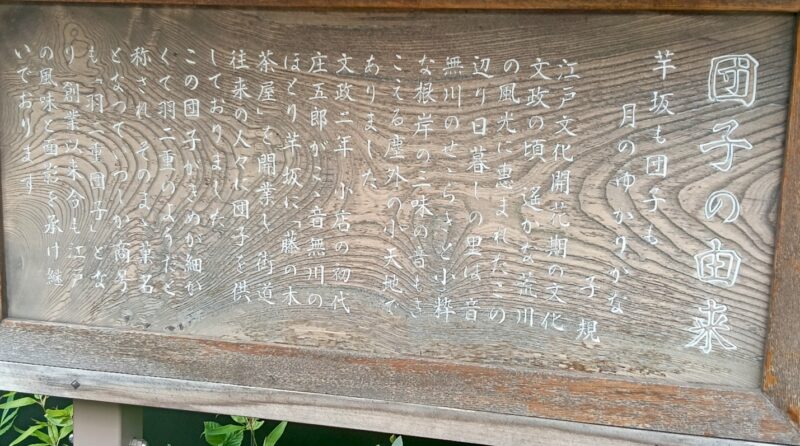 団子の由来
芋坂も団子も
月のゆかりかな
子規
江戸文化開花期の文化
文政の頃 遥かな荒川
の風光に恵まれたこの
辺り日暮しの里は 音
無川のせせらぎと小粋
な根岸の三味の音もき
こえる塵外の小天地で
ありました
文政二年 小店の初代
庄五郎がここ音無川の
ほとり芋坂に「藤の木
茶屋」を開業し 街道
往来の人々に団子を供
しておりました
この団子がきめが細か
くて羽二重のようだと
称され そのまゝ菓名
となって いつしか商号
も「羽二重団子」とな
り 創業以来今も江戸
の風味と面影を承け継
いでおります